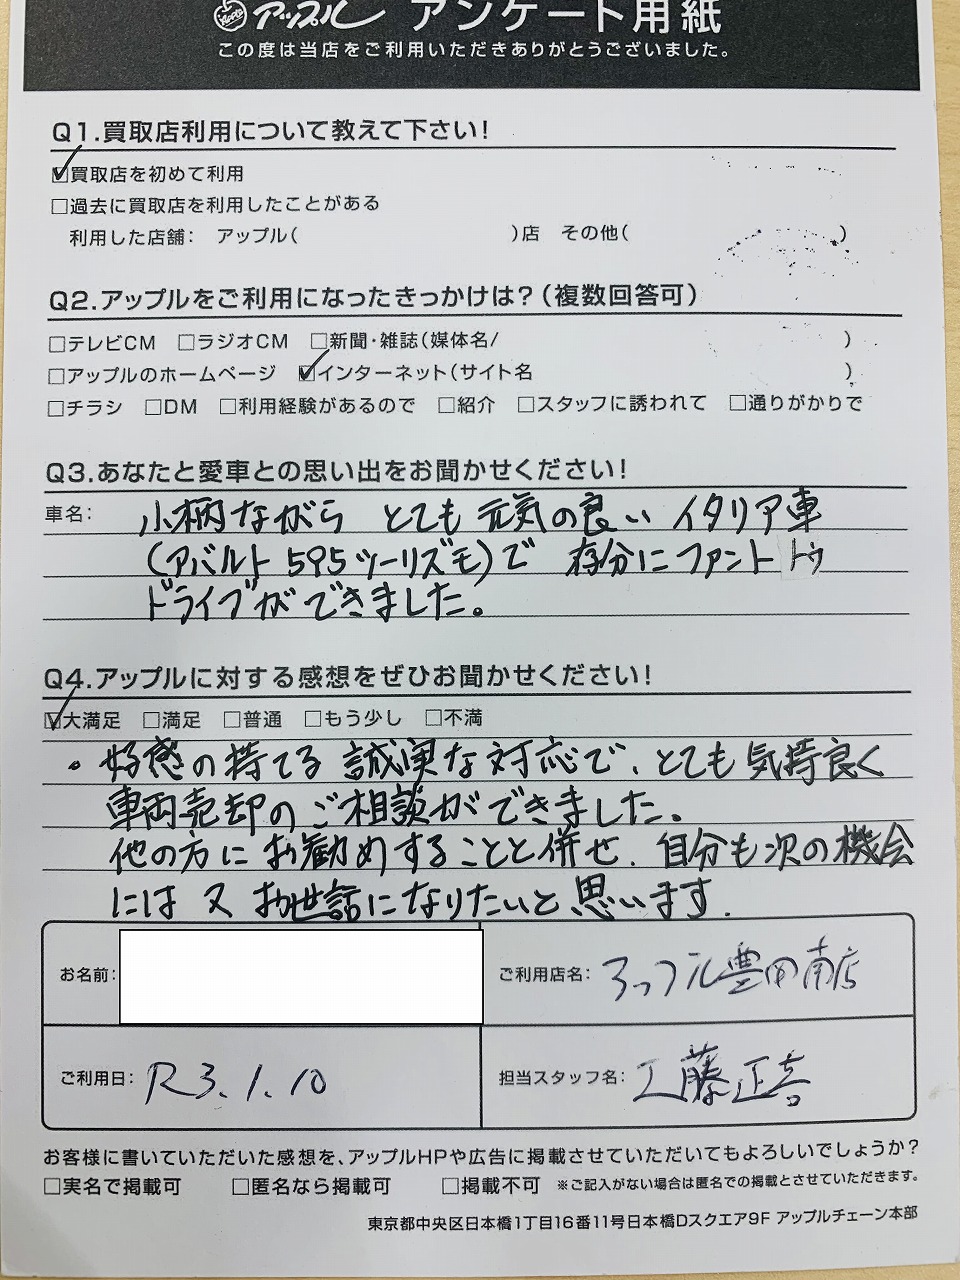 アップル アンケート用紙
この度は当店をご利用いただきありがとうございました。
Q1.買取店利用について教えて下さい!
☑買取店を初めて利用
□過去に買取店を利用したことがある
利用した店舗: アップル( )店 その他( )
Q2.アップルをご利用になったきっかけは?(複数回答可)
□テレビCM □ラジオCM □新聞・雑誌(媒体名/ )
□アップルのホームページ ☑インターネット(サイト名 )
□チラシ □DM □利用経験があるので □紹介 □スタッフに誘われて □通りがかりで
Q3.あなたと愛車との思い出をお聞かせください!
車名: 小柄ながら とても 元気の良い イタリア車
(アバルト 595ツーリズモ)で 存分にファントトゥ
ドライブができました。
Q4.アップルに対する感想をぜひお聞かせください!
☑大満足 □満足 □普通 □もう少し □不満
・好感の持てる 誠実な対応で、とても気持良く
車両売却のご相談ができました。
他の方に お勧めすることと併せ、自分も次の機会
には 又 お世話になりたいと思います.
お名前:
ご利用店名: アップル豊田南店
ご利用日: R3.1.10
担当スタッフ名: 工藤正
お客様に書いていただいた感想を、アップルHPや広告に掲載させていただいてもよろしいでしょうか?
□実名で掲載可 □匿名なら掲載可 □掲載不可 ※ご記入がない場合は匿名での掲載とさせていただきます。
東京都中央区日本橋1丁目16番11号日本橋Dスクエア9F アップルチェーン本部